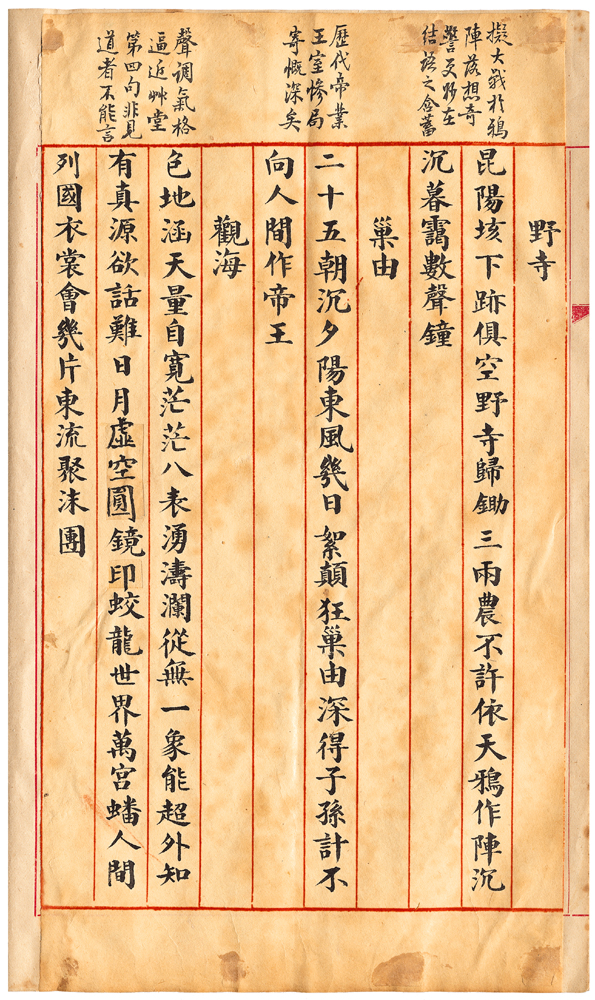 擬大戰於鴉
陣落想奇
警更妙在
結語之含蓄
歷代帝業
王室慘局
寄慨深矣
聲調氣格
逼近艸堂
第四句非見
道者不能言
野寺
昆陽垓下跡俱空野寺歸鋤三兩農不許依天鴉作陣沉
沉暮靄數聲鐘
巢由
二十五朝沉夕陽東風幾日絮顛狂巢由深得子孫計不
向人間作帝王
觀海
包地涵天量自寬茫茫八表湧濤瀾從無一象能超外知
有真源欲話難日月虛空圓鏡印蛟龍世界萬宮蟠人間
列國衣裳會幾片東流聚沫團